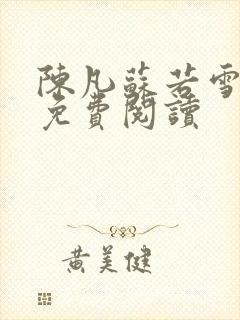 陳凡蘇若雪
免費閱讀
黃美健